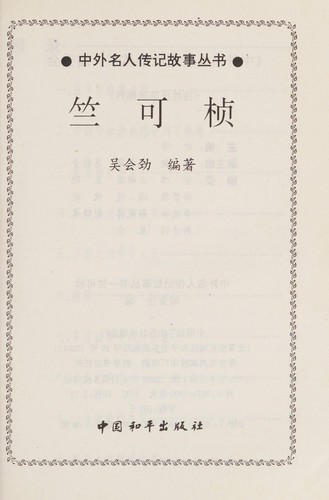 ●中外名人传记故事丛书●
竺可桢
吴会劲 编著
中国和平出版社